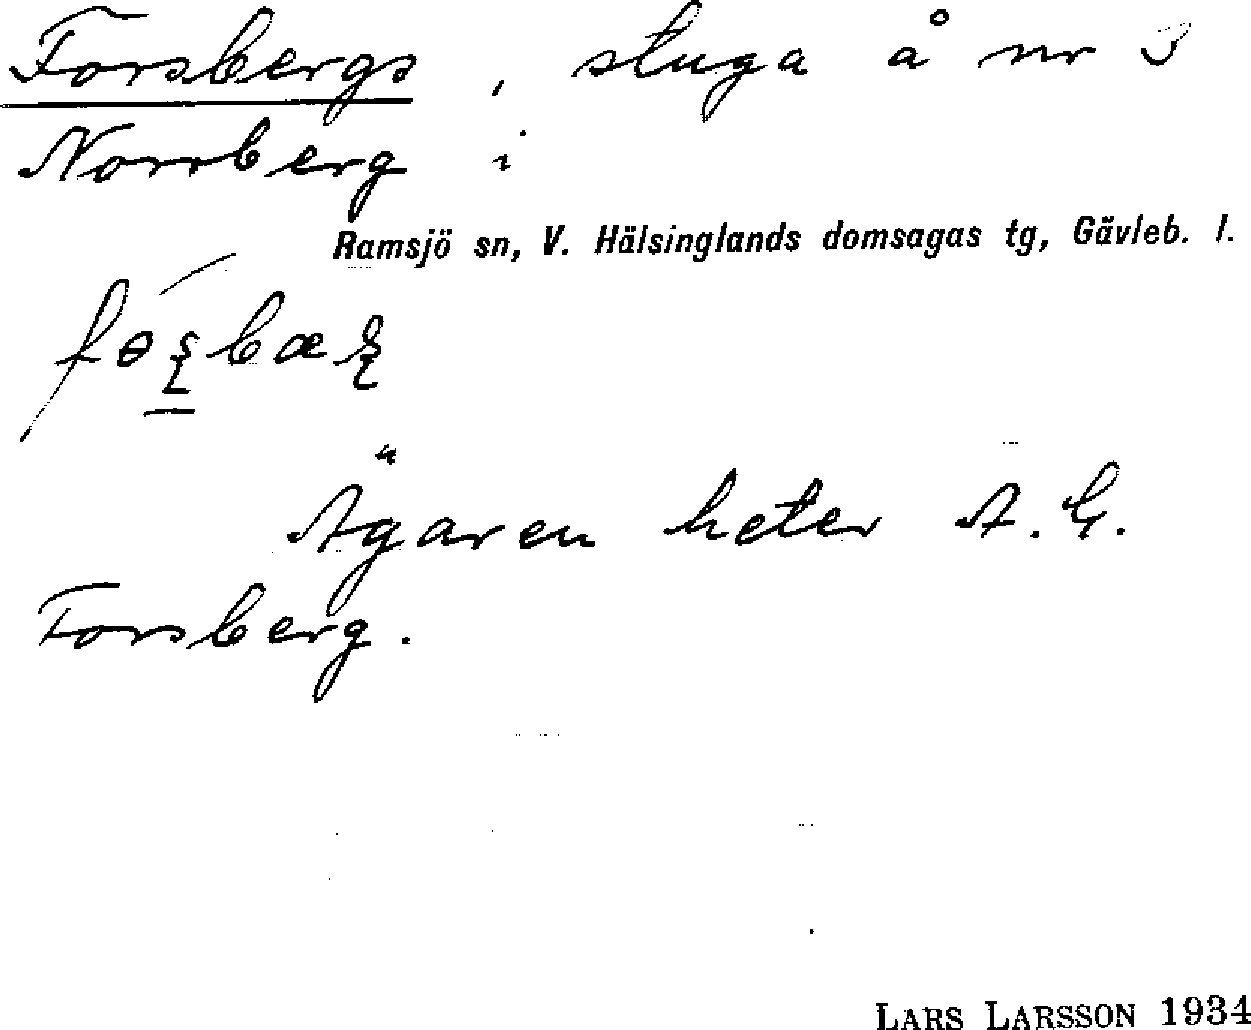 Forsbergs, stuga å nr 3
Norrberg i
Ramsjö sn, V. Hälsinglands domsagas tg, Gävleb. l.
Ägaren heter A. G.
Forsberg.
LARS LARSSON 1934